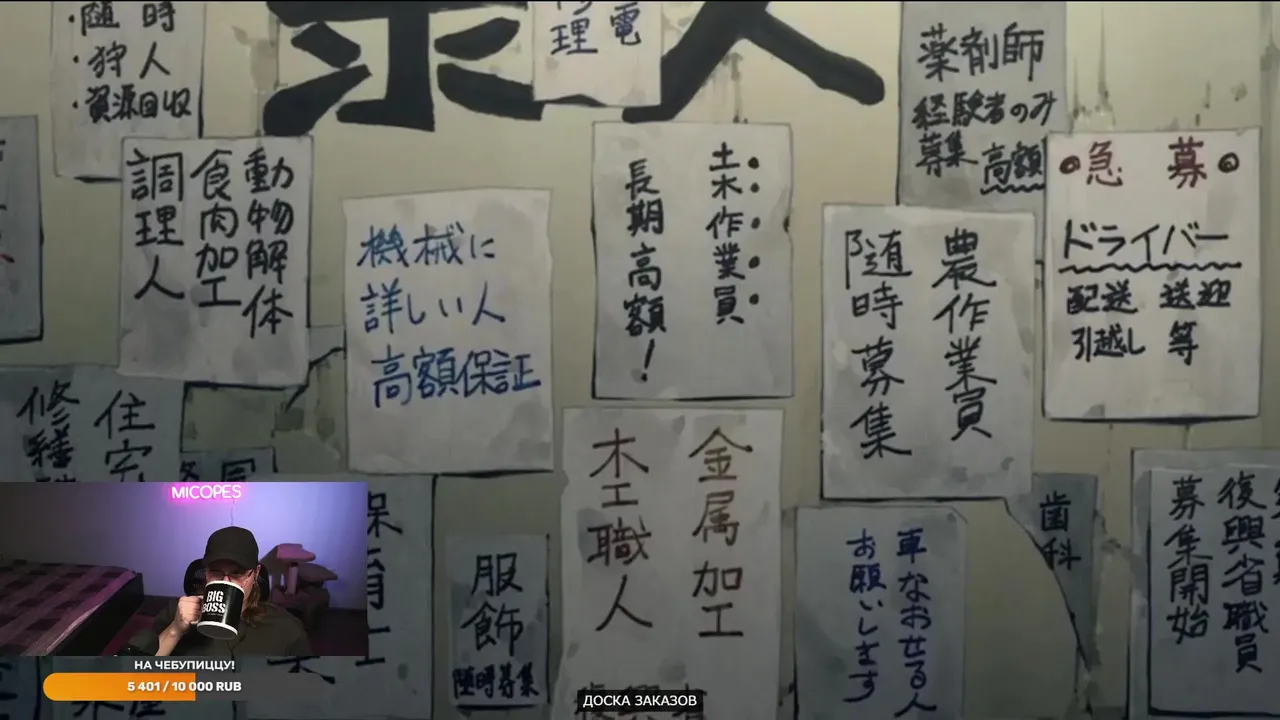 求人
・随時
・狩人
・資源回収
修電
理
薬剤師
経験者のみ
募集
高額
動物解体
食肉加工
調理人
機械に
詳しい人
高額保証
土木作業員
長期高額！
農作業員
随時募集
◎急 募◎
ドライバー
配送 送迎
引越し 等
住宅
修
金属加工
木工職人
服飾
随時募集
車なおせる人
お願いします
歯科
復興省職員
募集開始
MICOPES
BIG
BOSS
НА ЧЕБУПИЦЦУ!
5 401 / 10 000 RUB
ДОСКА ЗАКАЗОВ